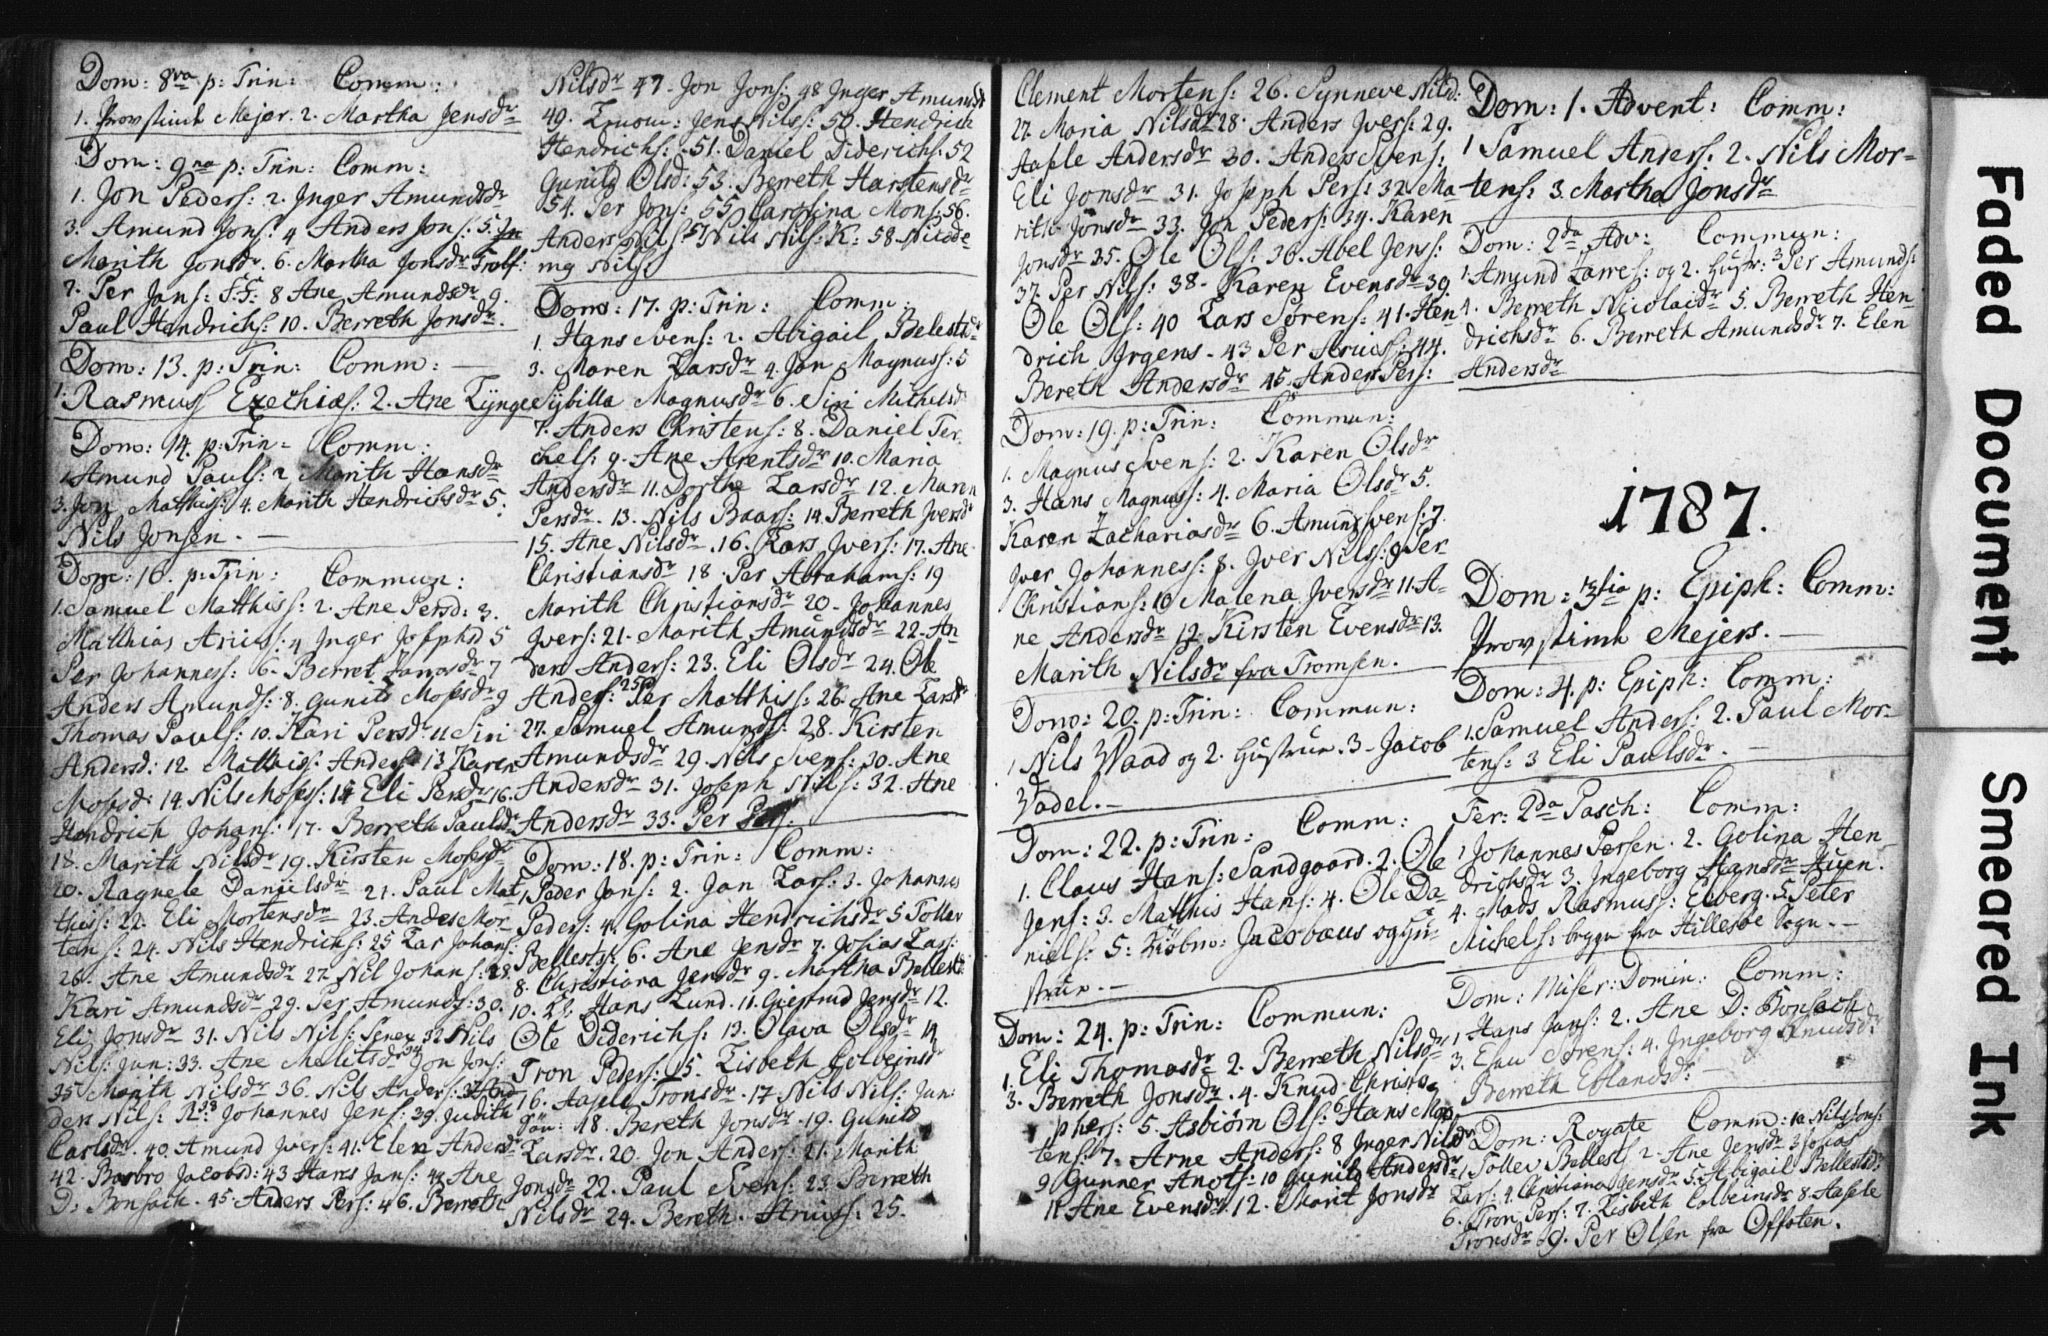 Dom: 8va p: Trin: Comm:
1. Provstinde Mejer. 2. Martha Jensdr
Dom: 9na p: Trin: Comm:
1. Jon Peders: 2. Inger Amundsdr
3. Amund Jons: 4 Anders Jons: 5.
Marith Jonsdr. 6. Martha Jonsdr Trolf:
7. Per Jans: S.S: 8 Ane Amundsdr 9.
Paul Hendrichs: 10. Berreth Jonsdr.
Dom: 13. p: Trin: Comm:
1. Rasmus Ezechias: 2. Ane Lynge
Dom: 14. p: Trin: Comm:
1 Amund Pauls: 2 Marith Hansdr
3. Jon Mathis: 4. Marith Hendrichsdr 5.
Nils Jonsen.
Dom: 16. p: Trin: Commun:
1. Samuel Matthiss: 2. Ane Persd: 3.
Matthias Arius: 4 Inger Josephsd 5
Per Johanness: 6. Berret 7
Anders Amunds: 8. Gunild Mosesdr 9
Thomas Pauls: 10. Kari Persdr 11 Siri
Andersd: 12 Mathiss Anders: 13 Karen
Mosesd: 14. Nils Moses: 15 Eli Persdr 16.
Hendrich Johans: 17. Berreth Paulsdr
18. Marith Nilsdr 19. Kirsten Mosesdr
20. Ragnele Danielsdr 21. Paul Mat
thiss: 22. Eli Mortensdr 23. Andes Mor-
tens: 24. Nils Hendrichs: 25 Lar Johans:
26. Ane Amundsdr 27. Nil Johans: 28.
Kari Amundsdr 29. Per Amunds: 30.
Eli Jonsdr 31. Nils Nils: Senex 32 Nils
Nils: Jun: 33. Ane Melitsdr 34 Jon Jons:
35 Marith Nilsdr 36. Nils Anders: 37
den Nils: R: 38 Johannes Jens: 39. Judith
Carlsdr. 40. Amund Ivers: 41. Elen Andersdr
42. Barbro Jacobsd: 43 Hans Jans: 44 Ane
D: Bonsach. 45 Anders Pers: 46. Berreth
Nilsdr 47. Jon Jons: 48 Inger Amundsdr
49. Jens Nils: 50. Hendrich
Hendrichs: 51. Daniel Diderichs: 52
Gunild Olsd: 53. Berreth Karstensdr
54. Per Jons: 55 Carolina Mons: 56.
Anders Nils: 57 Nils Nils: K: 58. Nicode
mus Nils:
Dom: 17. p: Trin: Comm:
1. Hans Svens: 2. Abigail Belestdr
3. Maren Larsdr 4. Jon Magnuss: 5
Sybilla Magnusdr 6. Siri Michelsd:
7. Anders Christens: 8. Daniel Ter
chels: 9. Ane Arentsdr 10. Maria
Andersdr 11. Dorthe Larsdr 12. Maren
Persdr. 13. Nils Baars: 14. Berreth Iversdr
15. Ane Nilsdr. 16. Lars Ivers: 17. Ane
Christiansdr 18. Per Abrahams: 19
Marith Christiansdr 20. Johannes
Ivers: 21. Marith Amundsdr 22. An-
ders Anders: 23. Eli Olsdr 24. Ole
Anders: 25 Per Matthiss: 26. Ane Larsdr
27. Samuel Amunds: 28. Kirsten
Amundsdr 29. Nils Svens: 30. Ane
Andersdr 31. Joseph Nils: 32. Ane
Andersdr 33. Per Pers:
Dom: 18. p: Trin: Comm:
1 Peder Jons: 2. Jan Lars: 3. Johannes
Peders: 4. Golina Hendrichsdr 5 Tollev
Bellests: 6. Ane Jensdr 7. Josias Lars:
8. Christiana Jensdr 9. Martha Bellestdr
10. Hans Lund. 11. Giertrud Jensdr 12.
Ole Diderichs: 13. Olava Olsdr 14
Tron Peders: 15. Lisbeth Colbeinsdr
16. Aasele Tronsdr. 17 Nils Nils: Jun:
18. Bereth Jonsdr. 19. Gunild
Larsdr. 20. Jon Anders: 21. Marith
Jonsdr 22. Paul Svens: 23 Berreth
Nilsdr 24. Bereth Ariuss: 25.
Clement Mortens: 26. Synneve Nilsd:
27. Maria Nilsdr 28. Anders Ivers: 29.
Aasele Andersdr 30. Anders Svens:
Eli Jonsdr 31. Joseph Pers: 32. Ma
rith Jonsdr 33. Jon Peders: 34. Karen
Jonsdr 35. Ole Ols: 36. Abel Jens:
37. Per Nils: 38. Karen Evensdr 39
Ole Ols: 40 Lars Sorens: 41. Hen
drich Irgens. 43 Per Arius: 44.
Bereth Andersdr 45. Anders Pers:
Dom: 19. p: Trin: Commun:
1. Magnus Svens: 2. Karen Olsdr
3. Hans Magnus: 4. Maria Olsdr 5.
Karen Zachariasdr 6. Amund Svens: 7.
Iver Johanness: 8. Iver Nils: 9 Per
Christians: 10 Malena Iversdr 11. A-
ne Andersdr 12. Kirsten Evensdr 13.
Marith Nilsdr fra Tromsen.
Dom: 20. p: Trin: Commun:
1 Nils Waad og 2. Hustrue. 3. Jacob
Wadel.
Dom: 22. p: Trin: Comm:
1. Claus Hans: Sandgaard. 2. Ole
Jens: 3. Mathis Hans: 4. Ole Da-
niels: 5. Kiøbm: Jacobæus og Hu-
strue.
Dom: 24. p: Trin: Commun:
1. Eli Thomasdr 2. Berreth Nilsdr
3. Berreth Jonsdr. 4. Knud Christo
phers: 5. Asbiörn Ols: 6 Hans Mor
tens: 7. Arne Anders: 8 Inger Nilsdr
9. Gunner Anots: 10 Gunild Andersdr
11. Ane Evensdr. 12. Marit Jonsdr
Dom: 1. Advent: Comm:
1 Samuel Anders: 2. Nils Mor-
tens: 3. Martha Jonsdr
Dom: 2da Adv: Commun:
1. Amund Lawes: og 2. Hustr: 3 Per Amunds:
4. Berreth Nicolaidr 5. Berreth Hen-
drichsdr 6. Berreth Amundsdr 7. Elen
Andersdr
1787.
Dom: 3tia p: Epiph: Comm:
Provstinde Mejers.
Dom: 4. p: Epiph: Comm:
1. Samuel Anders: 2. Paul Mor-
tens: 3 Eli Paulsdr.
Fer: 2da Pasch: Comm:
1 Johannes Persen. 2. Golina Hen
drichsdr 3. Ingeborg Hansdr Huen.
4. Mads Rasmus: Elberg. 5. Peter
Michels: begge fra Hillesøe Sogn.
Dom: Miser: Domin: Comm:
1 Hans Jans: 2. Ane D: Bonsach
3. Enu Sorens: 4. Ingeborg Knudsdr
Berreth Erlandsdr
Dom: Rogate Comm: 10. Nils Jons:
1 Tollev Bellests: 2. Ane Jensdr 3 Josias
Lars: 4. Christiana Jensdr 5. Abigail Bellestsdr
6. Tron Pers: 7. Lisbeth Colbeinsdr 8. Aasele
Tronsdr 9. Per Olsen fra Offoten.
Faded Document
Smeared Ink